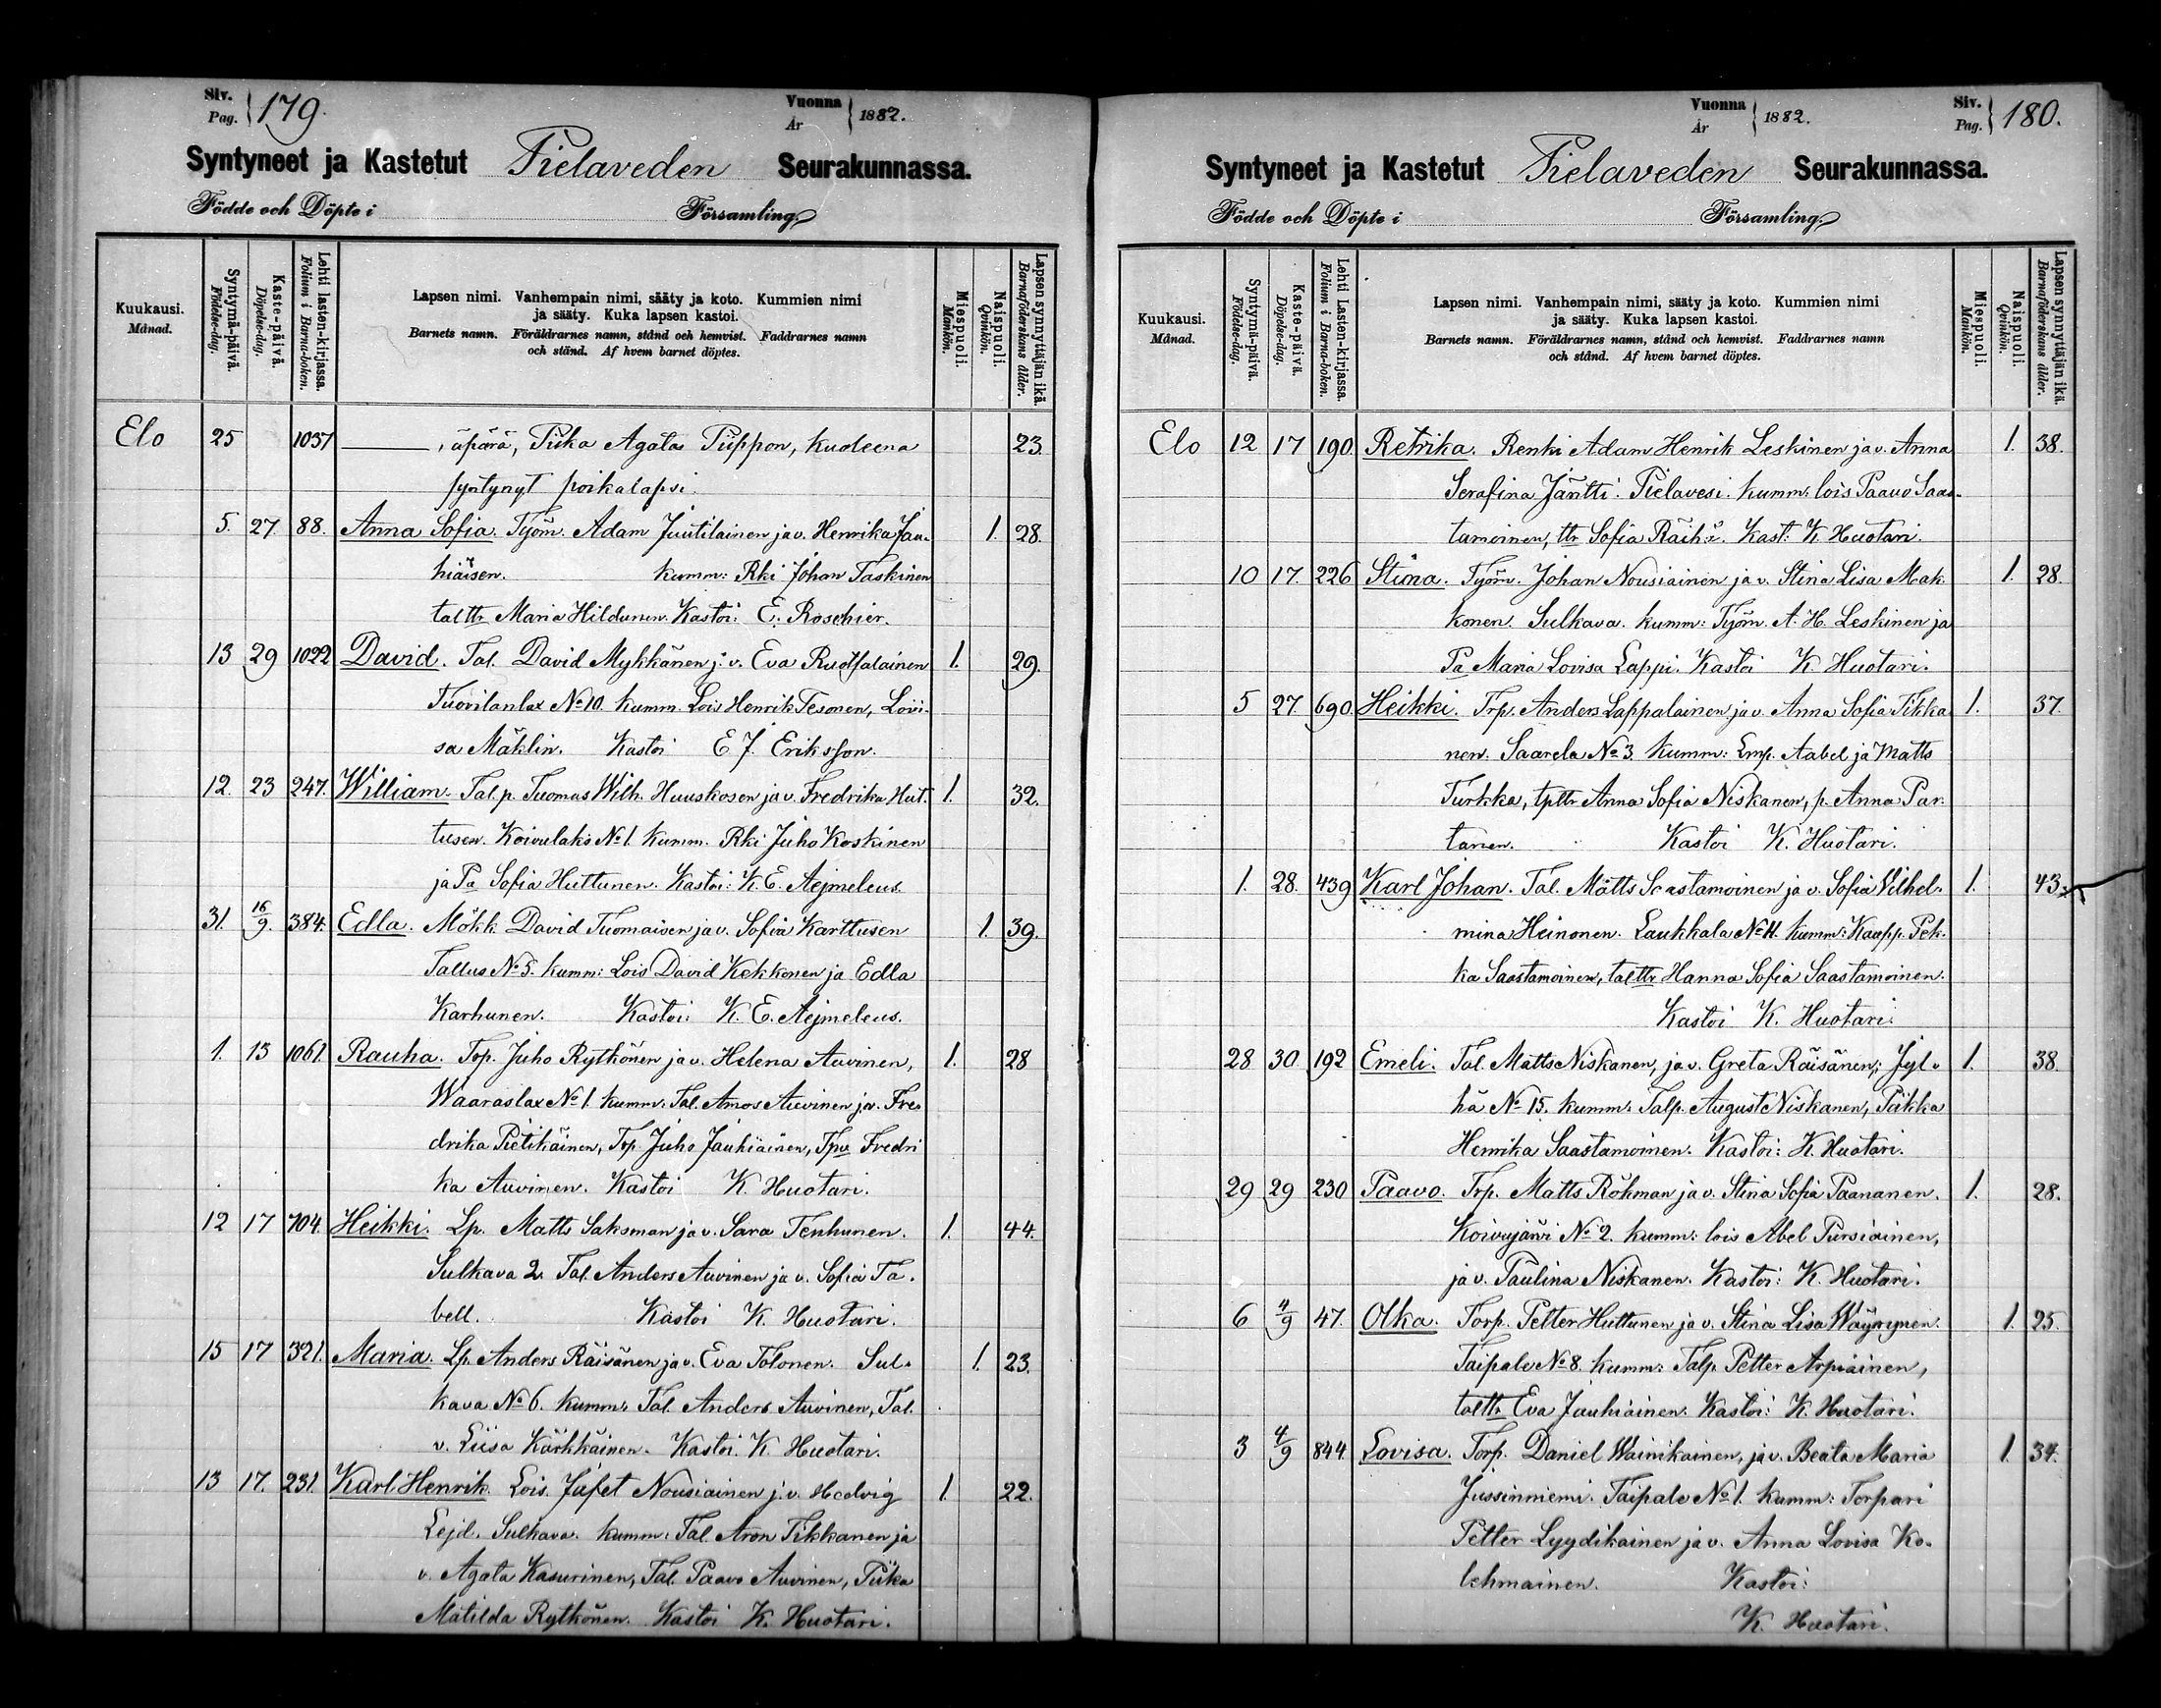 Siv.
Pag. 179.
Vuonna
År 1882.
Syntyneet ja Kastetut Pielaveden Seurakunnassa.
Födde och Döpte i Församling.
Kuukausi.
Månad.
Syntymä-päivä.
Födelse-dag.
Kaste-päivä.
Döpelse-dag.
Lehti lasten-kirjassa.
Folium i Barna-boken.
Lapsen nimi. Vanhempain nimi, sääty ja koto. Kummien nimi
ja sääty. Kuka lapsen kastoi.
Barnets namn. Föräldrarnes namn, stånd och hemvist. Faddrarnes namn
och stånd. Af hvem barnet döptes.
Miespuoli.
Mankön.
Naispuoli.
Qvinkön.
Lapsen synnyttäjän ikä.
Barnaföderskans ålder.
Elo 25 1037 äpärä, Piika Agata Piippon, kuoleena 23.
syntynyt poikalapsi.
5. 27. 88. Anna Sofia. Työm. Adam Juutilainen ja v. Henrika Jau- 1. 28.
hiäisen. kumm: Rki Johan Taskinen
taltr Maria Hildunen. Kastoi: E. Roschier.
13 29 1022 David. Tal. David Mykkänen j. v. Eva Ruotsalainen 1. 29.
Tuovilanlax No 10. kumm. Lois Henrik Tesonen, Lovi-
sa Mäklin. Kastoi E J. Eriksson.
12. 23 247. William. Tal. p. Tuomas Wilh. Huuskosen ja v. Fredrika Hut- 1. 32.
tusen. Koivulaks No 1. kumm. Rki Juho Koskinen
ja Pa Sofia Huttunen. Kastoi: K. E. Aejmeleus.
31. 16/9. 384. Edla. Mökk. David Tuomaisen ja v. Sofia Karttusen 1. 39.
Tallus No 5. kumm: Lois David Kekkonen ja Edla
Karhunen. Kastoi: K. E. Aejmeleus.
1. 13 1061. Rauha. Trp. Juho Rytkönen ja v. Helena Auvinen, 1. 28
Waaraslax No 1. kumm. Tal. Amos Auvinen ja v. Fre-
drika Pietikäinen, Trp. Juho Jauhiainen, Tpv Fredri
ka Auvinen. Kastoi K. Huotari.
12 17 704. Heikki. Lp. Matts Saksman ja v. Sara Tenhunen. 1. 44.
Sulkava 2. Tal. Anders Auvinen ja v. Sofia Ta-
bell. Kastoi K. Huotari.
15 17 321. Maria. Lp. Anders Räisänen ja v. Eva Tolonen. Sul- 1. 23.
kava No 6. kumm: Tal. Anders Auvinen, Tal.
v. Liisa Kärkkäinen. Kastoi. K. Huotari.
13 17. 231. Karl Henrik. Lois. Jafet Nousiainen j. v. Hedvig 1. 22.
Lejd. Sulkava. kumm: Tal. Aron Tikkanen ja
v. Agata Kasurinen, Tal. Paavo Auvinen, Piika
Matilda Rytkönen. Kastoi K. Huotari.
Vuonna
År 1882.
Siv.
Pag. 180.
Syntyneet ja Kastetut Pielaveden Seurakunnassa.
Födde och Döpte i Församling.
Kuukausi.
Månad.
Syntymä-päivä.
Födelse-dag.
Kaste-päivä.
Döpelse-dag.
Lehti Lasten-kirjassa.
Folium i Barna-boken.
Lapsen nimi. Vanhempain nimi, sääty ja koto. Kummien nimi
ja sääty. Kuka lapsen kastoi.
Barnets namn. Föräldrarnes namn, stånd och hemvist. Faddrarnes namn
och stånd. Af hvem barnet döptes.
Miespuoli.
Mankön.
Naispuoli.
Qvinkön.
Lapsen synnyttäjän ikä.
Barnaföderskans ålder.
Elo 12 17 190. Retrika. Renki Adam Henrik Leskinen ja v. Anna 1. 38.
Serafina Jäntti. Pielavesi. kumm: lois Paavo Saas-
tamoinen, ttr Sofia Räihä. Kast: K. Huotari.
10 17. 226 Stina. Työm. Johan Nousiainen ja v. Stina Lisa Mak- 1. 28.
konen. Sulkava. kumm: Työm. A. H. Leskinen ja
Pa Maria Lovisa Lappi. Kastoi K. Huotari.
5 27 690. Heikki. Trp. Anders Lappalainen ja v. Anna Sofia Tikka 1. 37.
nen. Saarela No 3. kumm: Lmp. Aabel ja Matts
Turkka, tpttr Anna Sofia Niskanen, p. Anna Par-
tanen. Kastoi K. Huotari.
1. 28. 439 Karl Johan. Tal. Matts Saastamoinen ja v. Sofia Vilhel- 1. 43.
mina Heinonen. Laukkala No 11. kumm: Kaupp. Pek-
ka Saastamoinen, talttr Hanna Sofia Saastamoinen.
Kastoi K. Huotari.
28 30 192 Emeli. Tal. Matts Niskanen, ja v. Greta Räisänen, Jyl- 1. 38.
hä No 15. kumm: Talp. August Niskanen, Piikka
Henrika Saastamoinen. Kastoi: K. Huotari.
29 29 230 Paavo. Trp. Matts Röhman ja v. Stina Sofia Paananen. 1. 28.
Koivujärvi No 2. kumm: lois Abel Pursiainen,
ja v. Paulina Niskanen. Kastoi: K. Huotari.
6 4/9 47. Olka. Torp. Petter Huttunen ja v. Stina Lisa Wäyrynen. 1. 25.
Taipale No 8. kumm: Talp. Petter Arpiainen,
talttr Eva Jauhiainen. Kastoi: K. Huotari.
3 4/9 844. Lovisa. Torp. Daniel Wainikainen, ja v. Beata Maria 1. 34.
Jussinniemi. Taipale No 1. kumm: Torpari
Petter Lyydikainen ja v. Anna Lovisa Ko-
lehmainen. Kastoi:
K. Huotari.